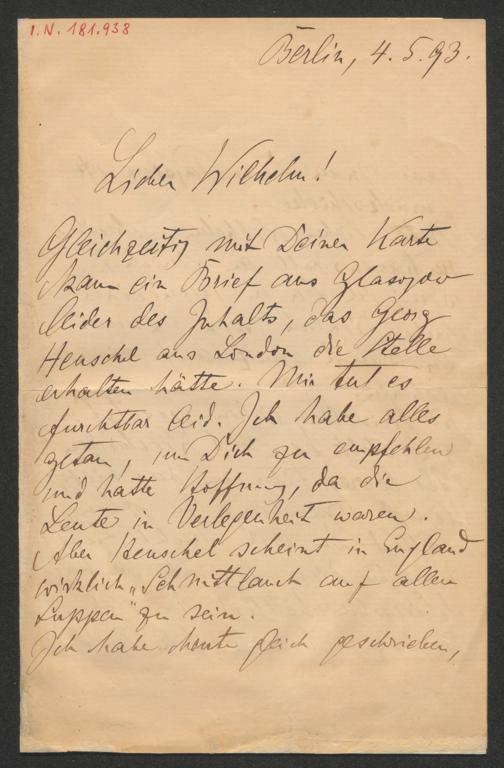 I.N. 181.938
Berlin, 4.5.93.
Lieber Wilhelm!
Gleichzeitig mit Deiner Karte
kam ein Brief aus Glasgow
leider des Inhalts, das Georg
Henschel aus London die Stelle
erhalten hätte. Mir tut es
furchtbar leid. Ich habe alles
getan, um Dich zu empfehlen
und hatte Hoffnung, da die
Leute in Verlegenheit waren.
Aber Henschel scheint in England
wirklich „Schnittlauch auf allen
Suppen" zu sein.
Ich habe heute gleich geschrieben,